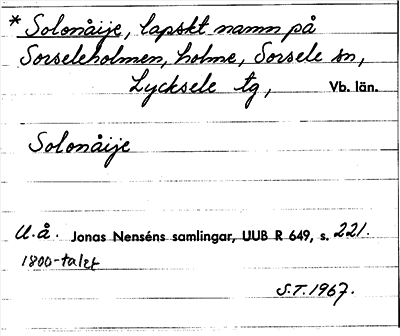 * Solonåije, lapskt namn på
Sorseleholmen, holme, Sorsele sn,
Lycksele tg, Vb. län.
Solonåije
U.å. Jonas Nenséns samlingar, UUB R 649, s. 221.
1800-talet
S.T. 1967.